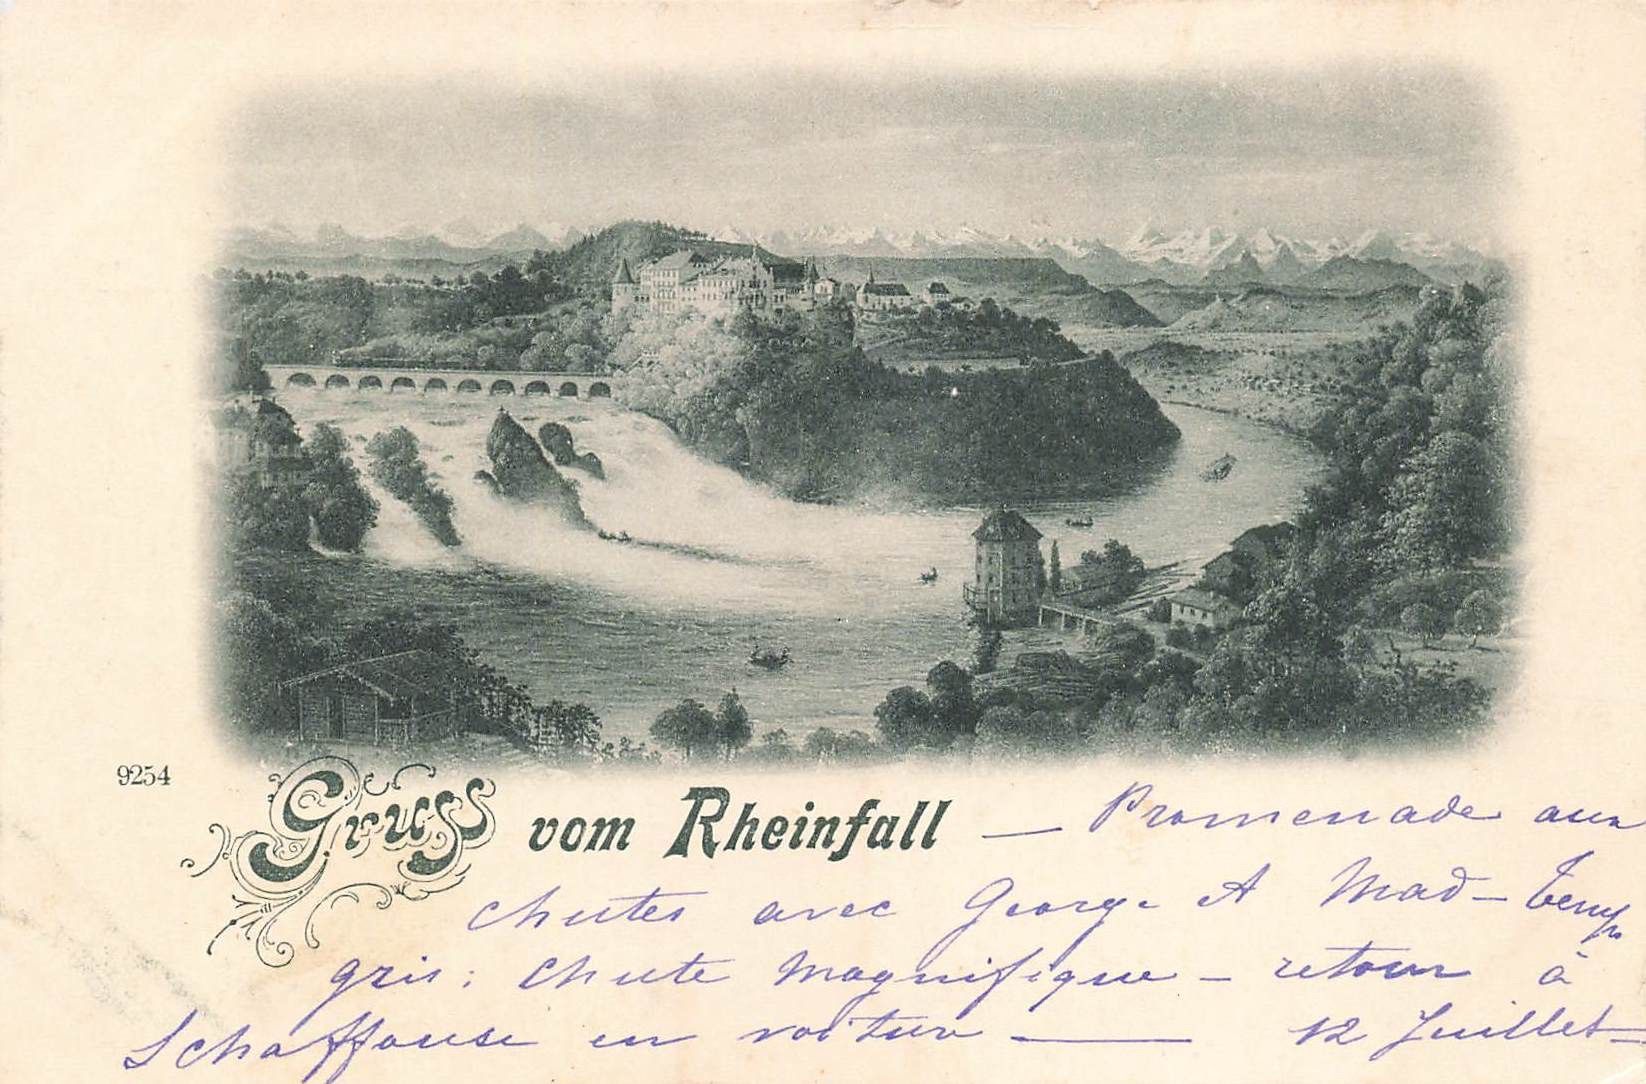 9254
Gruss vom Rheinfall — Promenade aux
chutes avec George et Mad – temps
gris; chute magnifique – retour à
Schaffouse en voiture — 12 Juillet